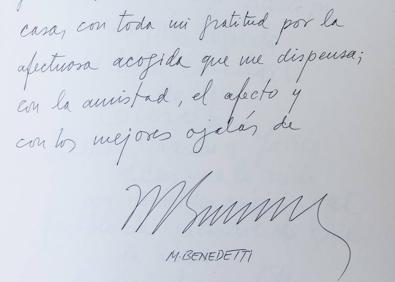 casa, con toda mi gratitud por la
afectuosa acogida que me dispensa;
con la amistad, el afecto y
con los mejores ojalás de
M. BENEDETTI